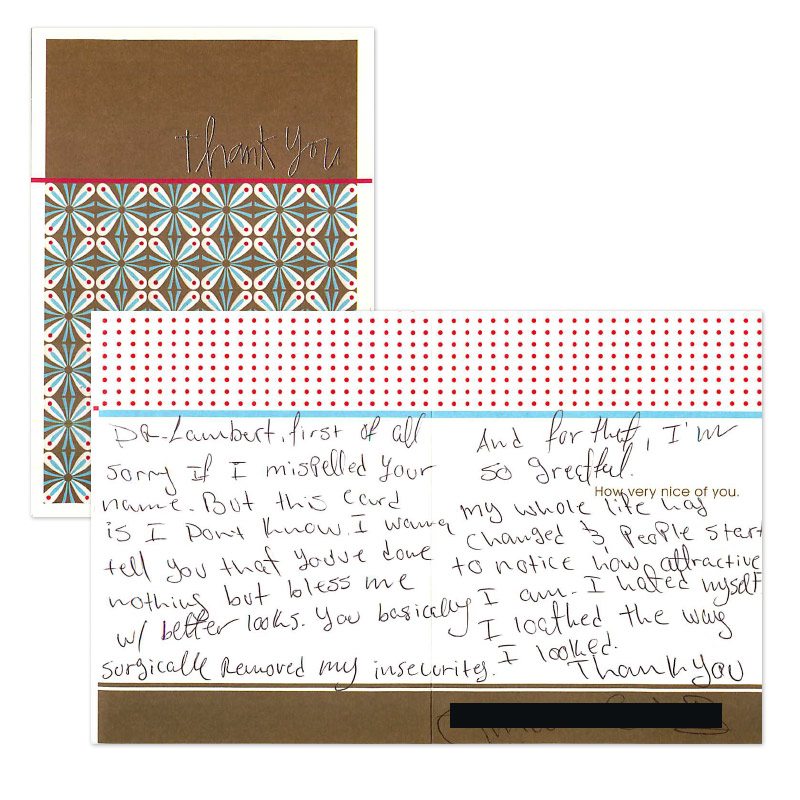 thank you
DR. Lambert, first of all
sorry If I mispelled your
name. But this card
is I Dont know. I wanna
tell you that you've done
nothing but bless me
w/ better looks. You basically
surgically Removed my insecurites.
And for that, I'm
so greatful.
How very nice of you.
my whole life has
changed & People start
to notice how attractive
I am. I hated myself
I loathed the way
I looked.
Thank you